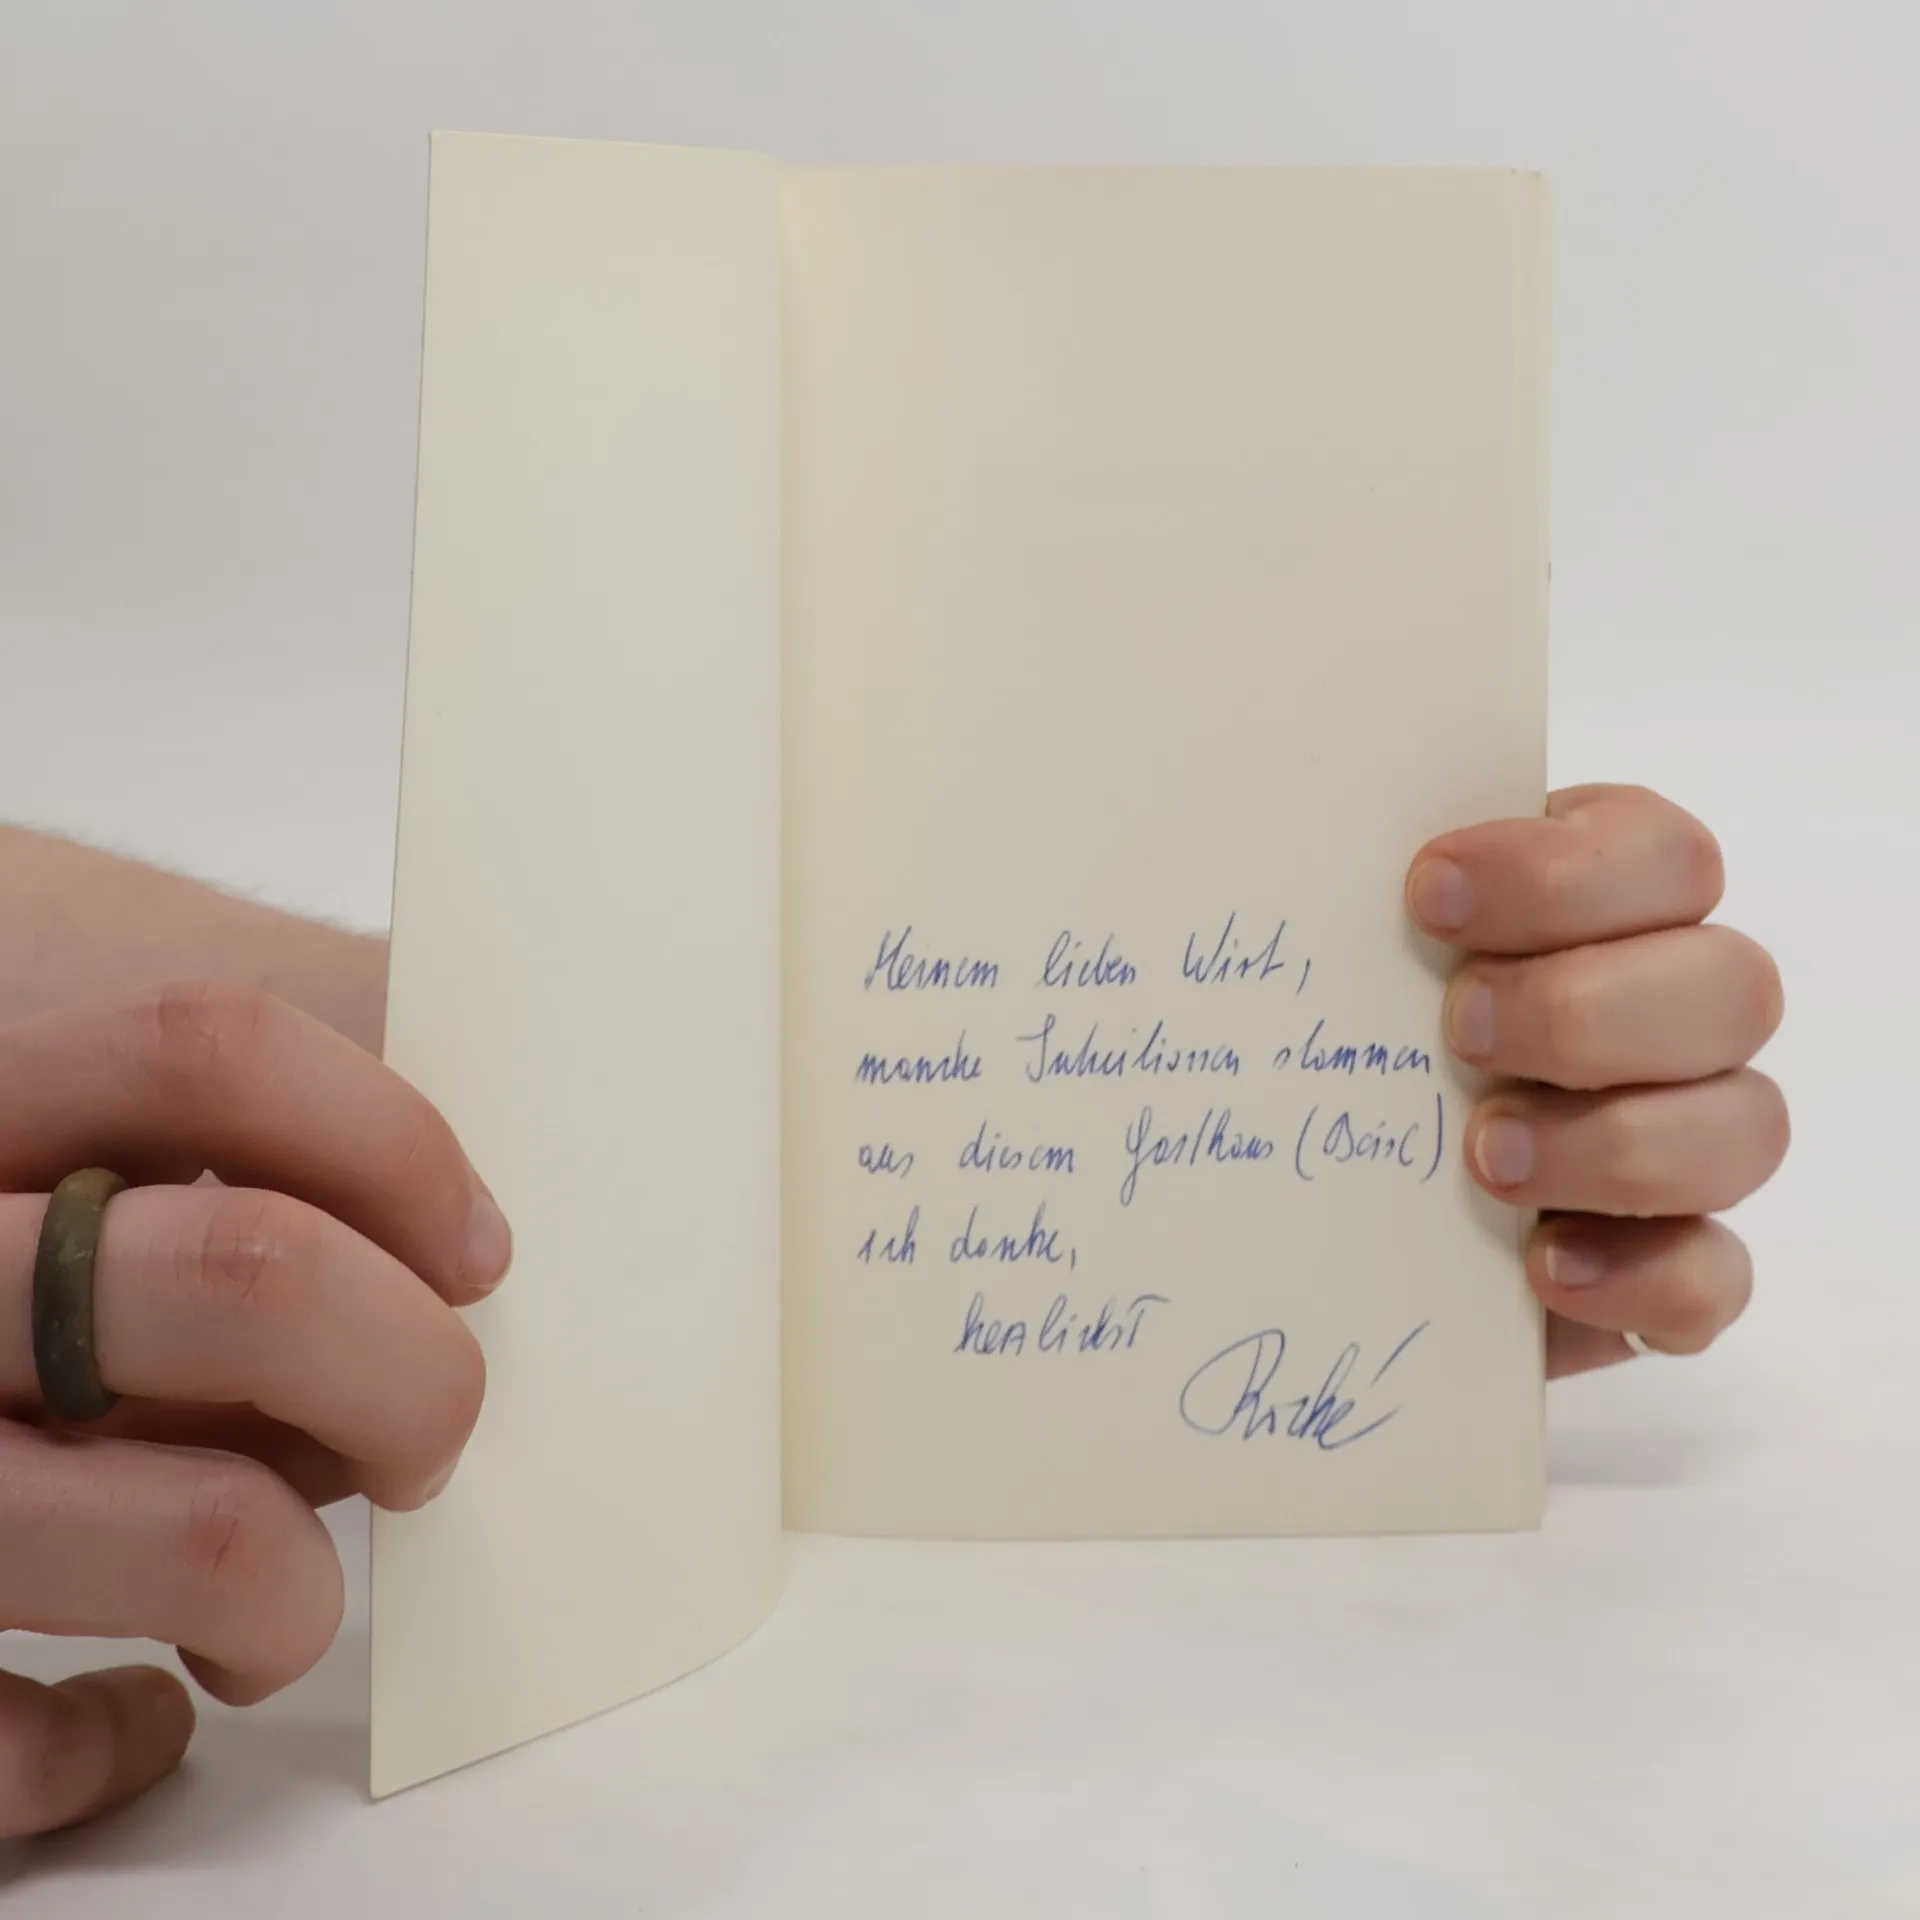 Meinem lieben Wirt,
manche stammen
aus diesem Gasthaus (Beisl)
ich danke,
herzlichst